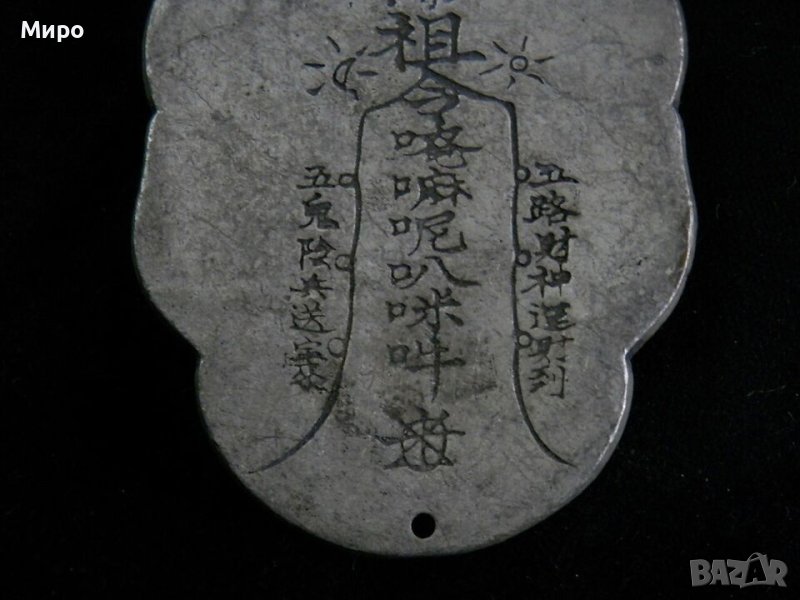 Миро
祖
令唵嘛呢叭咪吽
五路財神運財到
五鬼陰兵送寶
BAZAR